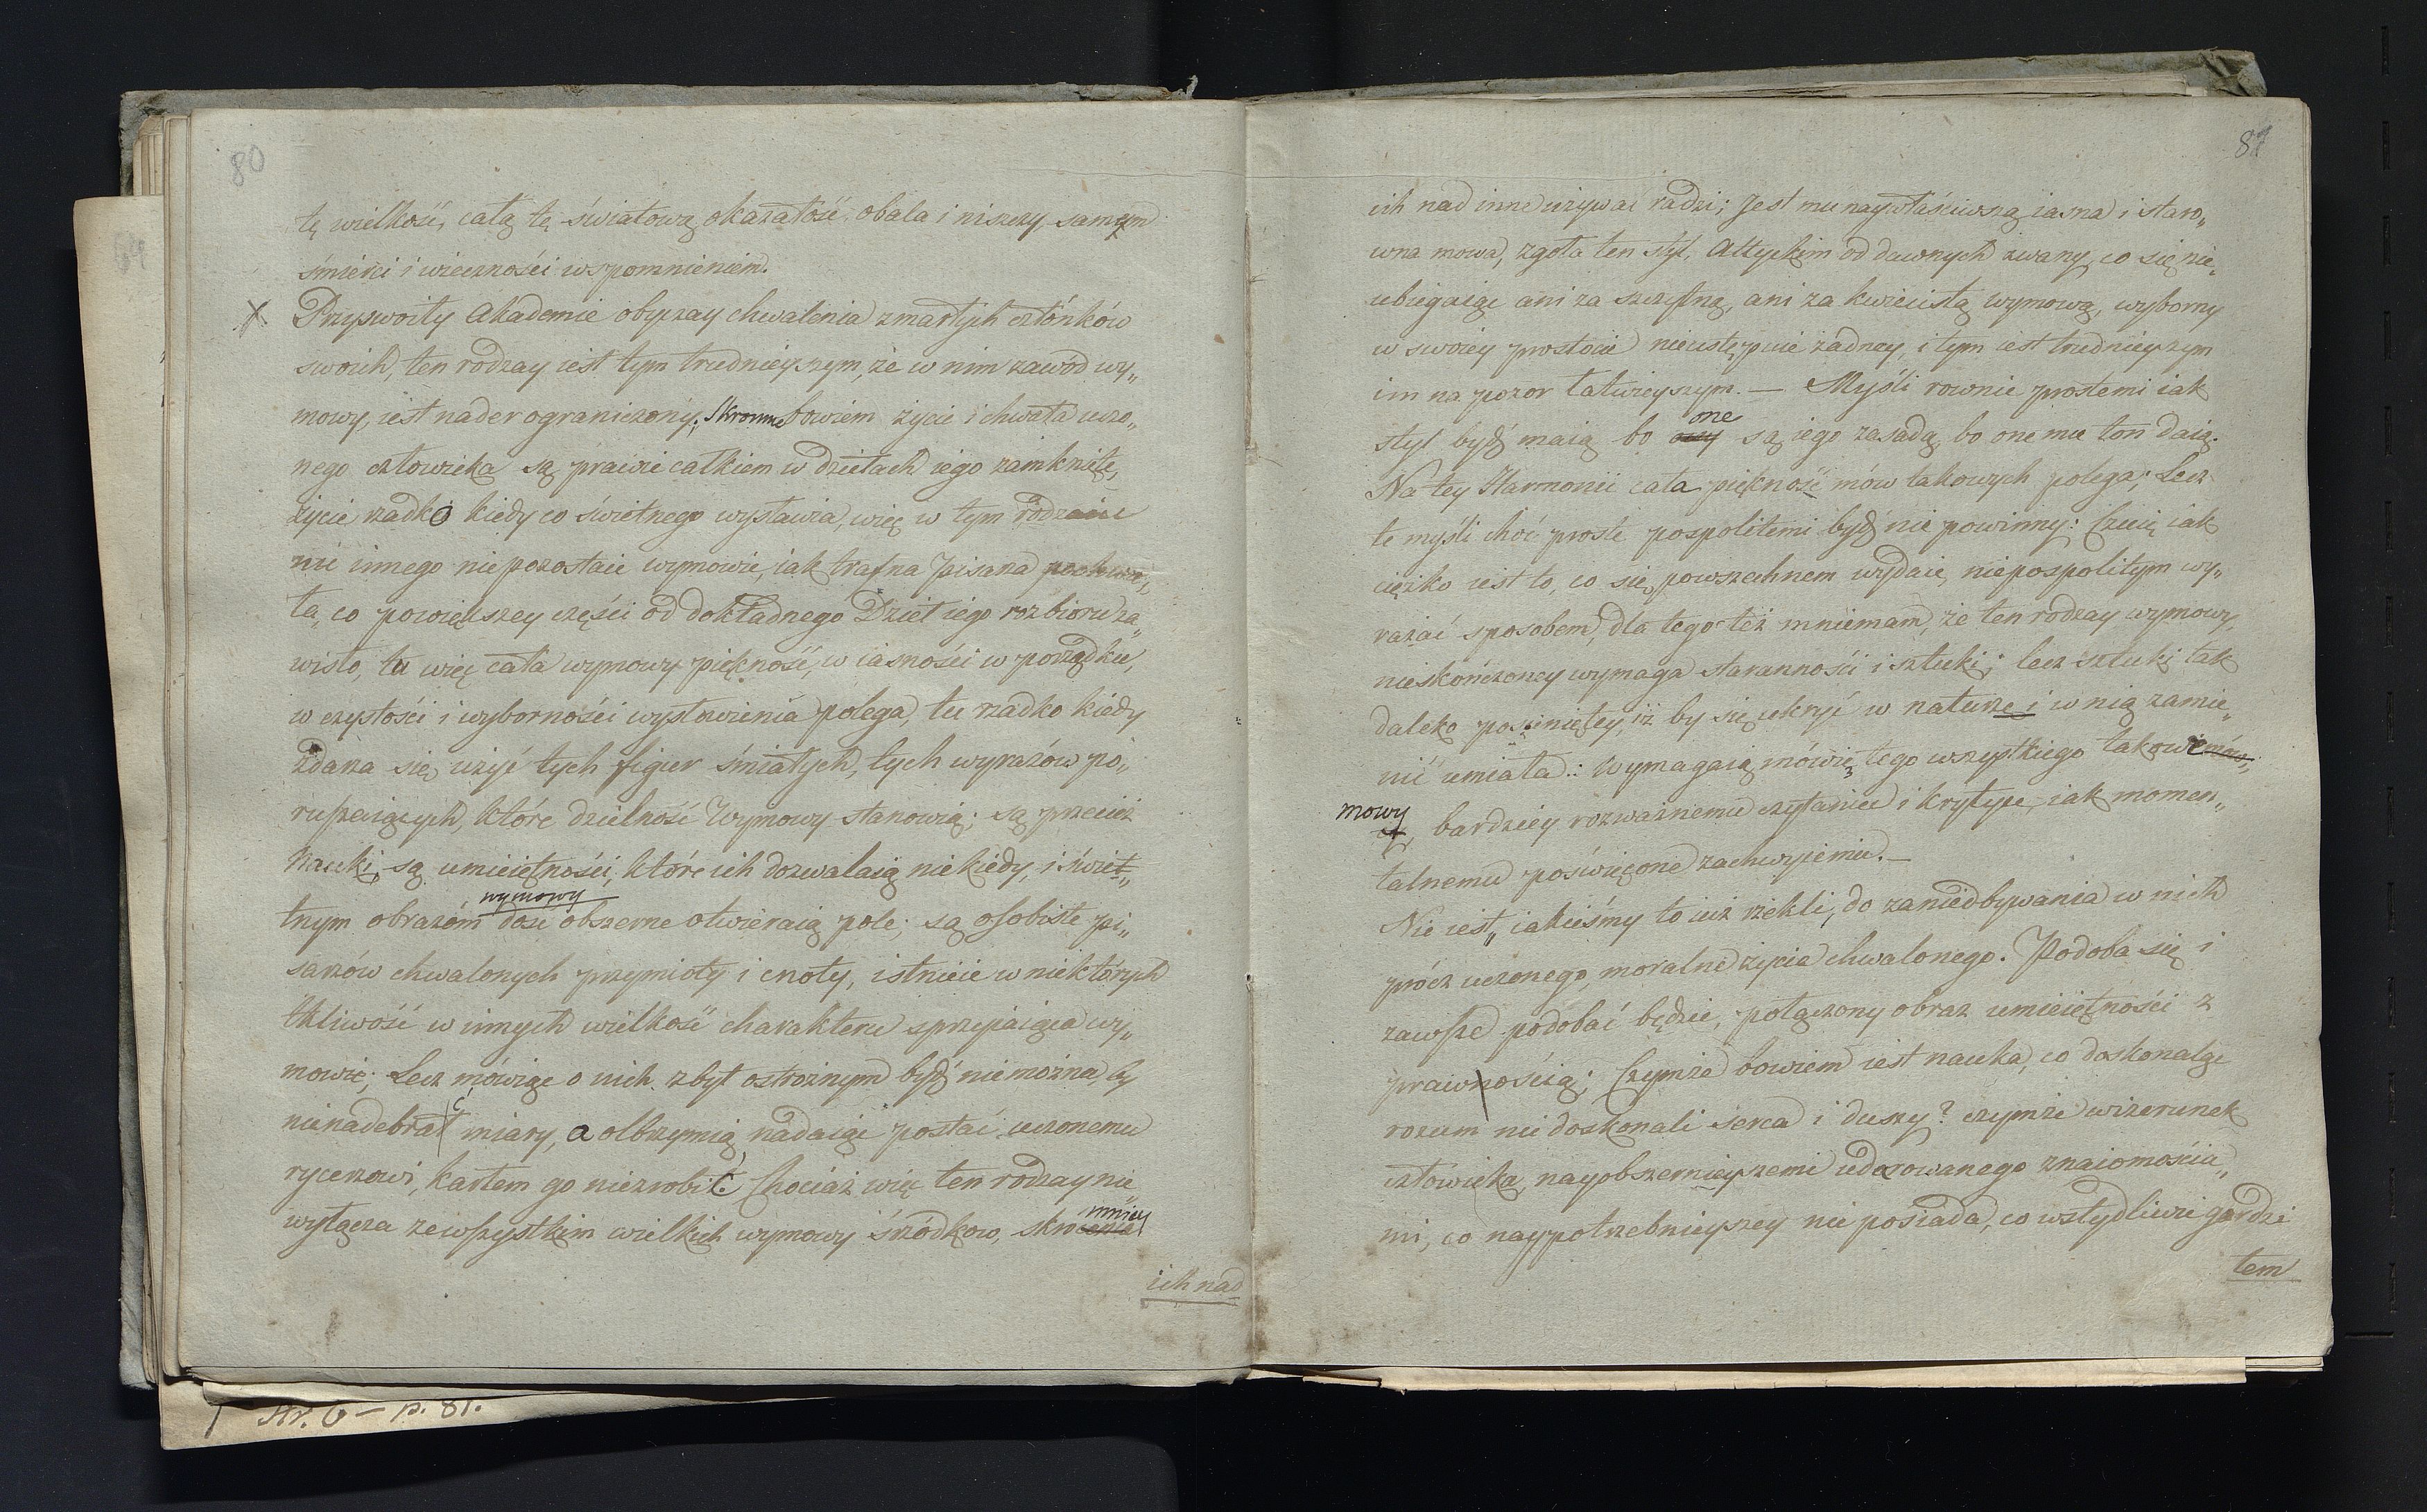 80
tę wielkość, całą tę światową okazałość, obala i niszczy, samym
śmierci i wieczności wspomnieniem.
X Przyswoiły Akademie obyczay chwalenia zmarłych człónków
swoich, ten rodzay iest tym trudnieyszym, że w nim zawód wy„
mowy, iest nader ograniczony; skromne bowiem życie i chwała uczo„
nego człowieka są prawie całkiem w dziełach iego zamknięte,
życie rzadko kiedy co świetnego wystawia, więc w tym rodzaiu
nic innego niepozostaie wymowie, iak trafna Pisarza pochwa„
ła, co powiększey części od dokładnego Dzieł iego rozbioru za„
wisło, tu więc cała wymowy piękność, w iasności w porządku,
w czystości i wyborności wysłowienia polega, tu rzadko kiedy
Zdarza się użyć tych figur śmiałych, tych wyrazów po„
ruszaiących, które dzielność Wymowy stanowią; są przecież
Nauki, są umieiętności, które ich dozwalaią niekiedy, i świet„
wymowy
tnym obrazóm dość obszerne otwieraią pole; są osobiste pi„
sarzów chwalonych przymioty i cnoty, istnieie w niektórych
tkliwość w innych wielkość charakteru sprzyiaiąca wy„
mowie; Lecz mówiąc o nich zbyt ostrożnym bydź nie można, by
nienadebrać miary, a olbrzymią nadaiąc postać uczonemu
rycerzowi, karłem go niezrobić. Chociaż więc ten rodzay nie
wyłącza zewszystkim wielkich wymowy śrzódkow, skro
mniey
ich nad
81
ich nad inne używać radzi; Jest mu naywłaściwszą iasna i staro„
wna mowa, zgoła ten styl, Attyckim od dawnych zwany, co się nie„
ubiegaiąc ani za szczytną, ani za kwiecistą wymową, wyborny
w swoiey prostocie nieustępuie żadney, i tym iest trudnieyszym
im na pozor łatwieyszym. — Myśli rownie prostemi iak
one
styl bydź maią bo są iego zasadą, bo one mu ton daią.
Na tey Harmonii cała piękność mów takowych polega; Lecz
te myśli choć proste pospolitemi bydź nie powinny: Czuię iak
ciężko iest to, co się powszechnem wydaie, niepospolitym wy„
rażać sposobem, dla tego też mniemam, że ten rodzay wymowy,
nieskończoney wymaga staranności i sztuki; lecz sztuki tak
daleko posunięty, iż by się ukryć w naturze i w nią zamie„
nić umiała.: Wymagaią mówię tego wszystkiego takowe mów„
mowy
cz, bardziey rozważnemu czytaniu i krytyce, iak momen„
talnemu poświęcone zachwyceniu. —
Nie iest„ iakieśmy to iuż rzekli, do zaniedbywania w nich
prócz uczonego, moralne życia chwalonego. Podoba się i
zawsze podobać będzie, połączony obraz umieiętności z
prawnością; Czymże bowiem iest nauka, co doskonaląc
rozum nie doskonali serca i duszy? czymże wizerunek
człowieka, nayobszernieyszemi udarowanego znaiomościa„
mi, co naypotrzebnieyszey nie posiada, co wstydliwie gardzi
tem
Str. 6 — p. 81.